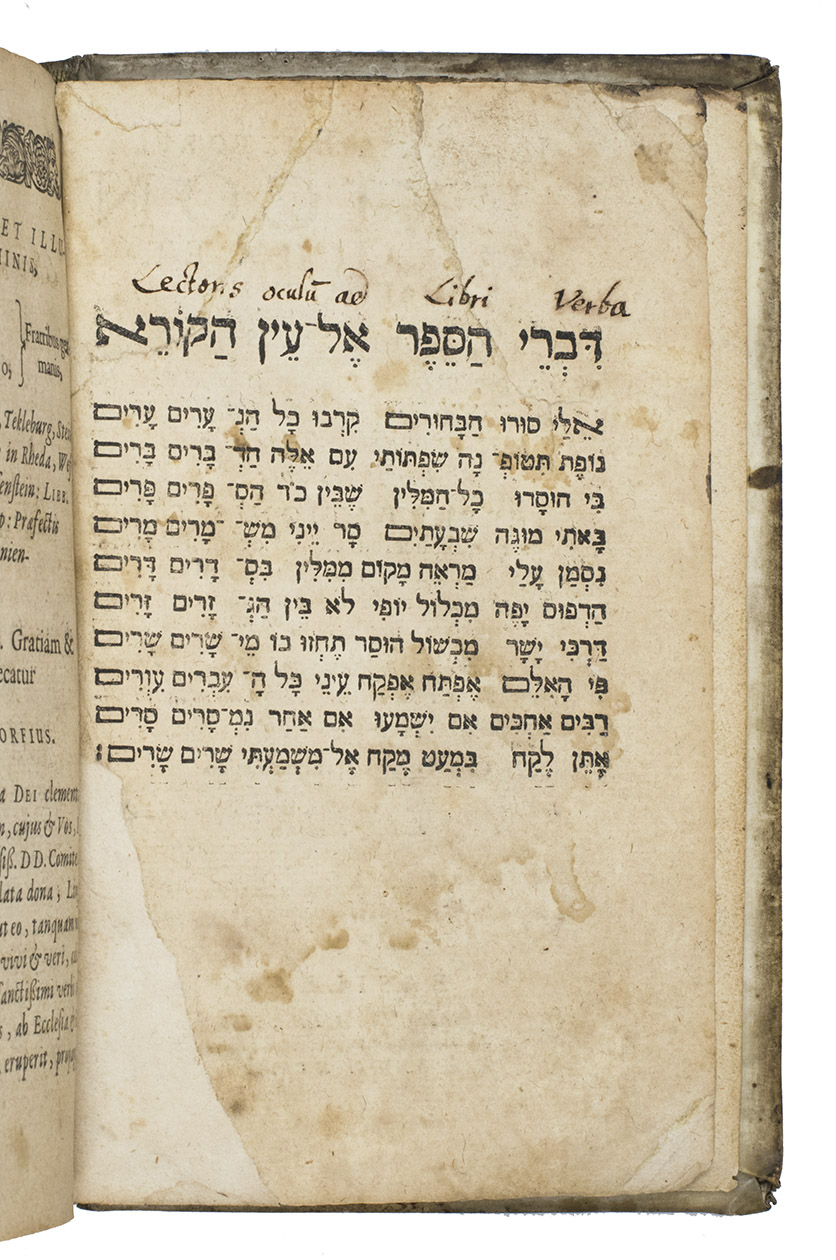 ET ILLU-
Fratribus
manis,
Tekleburg,
in Rheda,
enstein: LIBB.
: Præfectis
Gratiam &
ORFIUS.
DEI
cujus & Vos,
DD. Comite
lata dona,
ut eo, tanquam
vivi & veri,
sanctißimi
ab Ecclesia
eruperit,
Lectoris oculū ad Libri Verba
דִּבְרֵי הַסֵּפֶר אֶל־עֵין הַקּוֹרֵא
אֵלַי סוּרוּ הַבָּחוּרִים קִרְבוּ כָל הַנְ־ עָרִים עָרִים
נוֹפֶת תִּטּוֹפְ־ נָה שִׂפְתוֹתַי עִם אֵלֶּה הַדְ־ בָרִים בָּרִים
בִּי חוּסְרוּ כָל־הַמִּלִּין שֶׁבֵּין כֹּד הַסְ־ פָרִים פָּרִים
בָּאתִי מוּגֶּה שִׁבְעָתַיִם סָר יֵינִי מִשְׁ־ מָרִים מָרִים
נִסְמַן עָלַי מַרְאֵה מָקוֹם מִמִּלִּין בִּסְ־ דָרִים דָּרִים
הַדְּפוּס יָפֶה מִכְלוֹל יוֹפִי לֹא בֵּין הַגְּ־ זָרִים זָרִים
דַּרְכִּי יָשָׁר מִכְשׁוֹל הוּסַר תֶּחְזוּ בוֹ מֵי־ שָׁרִים שָׁרִים
פִּי הָאִלֵּם אֶפְתַּח אֶפְקַח עֵינֵי כָּל הָ־ עִבְרִים עִוְרִים
רַבִּים אַחְכִּים אִם יִשְׁמָעוּ אִם אַחַר נִמְ־סָרִים סָרִים
אֶתֵּן לֶקַח בִּמְעַט מֶקַח אֶל־מִשְׁמַעְתִּי שָׁרִים שָׂרִים׃